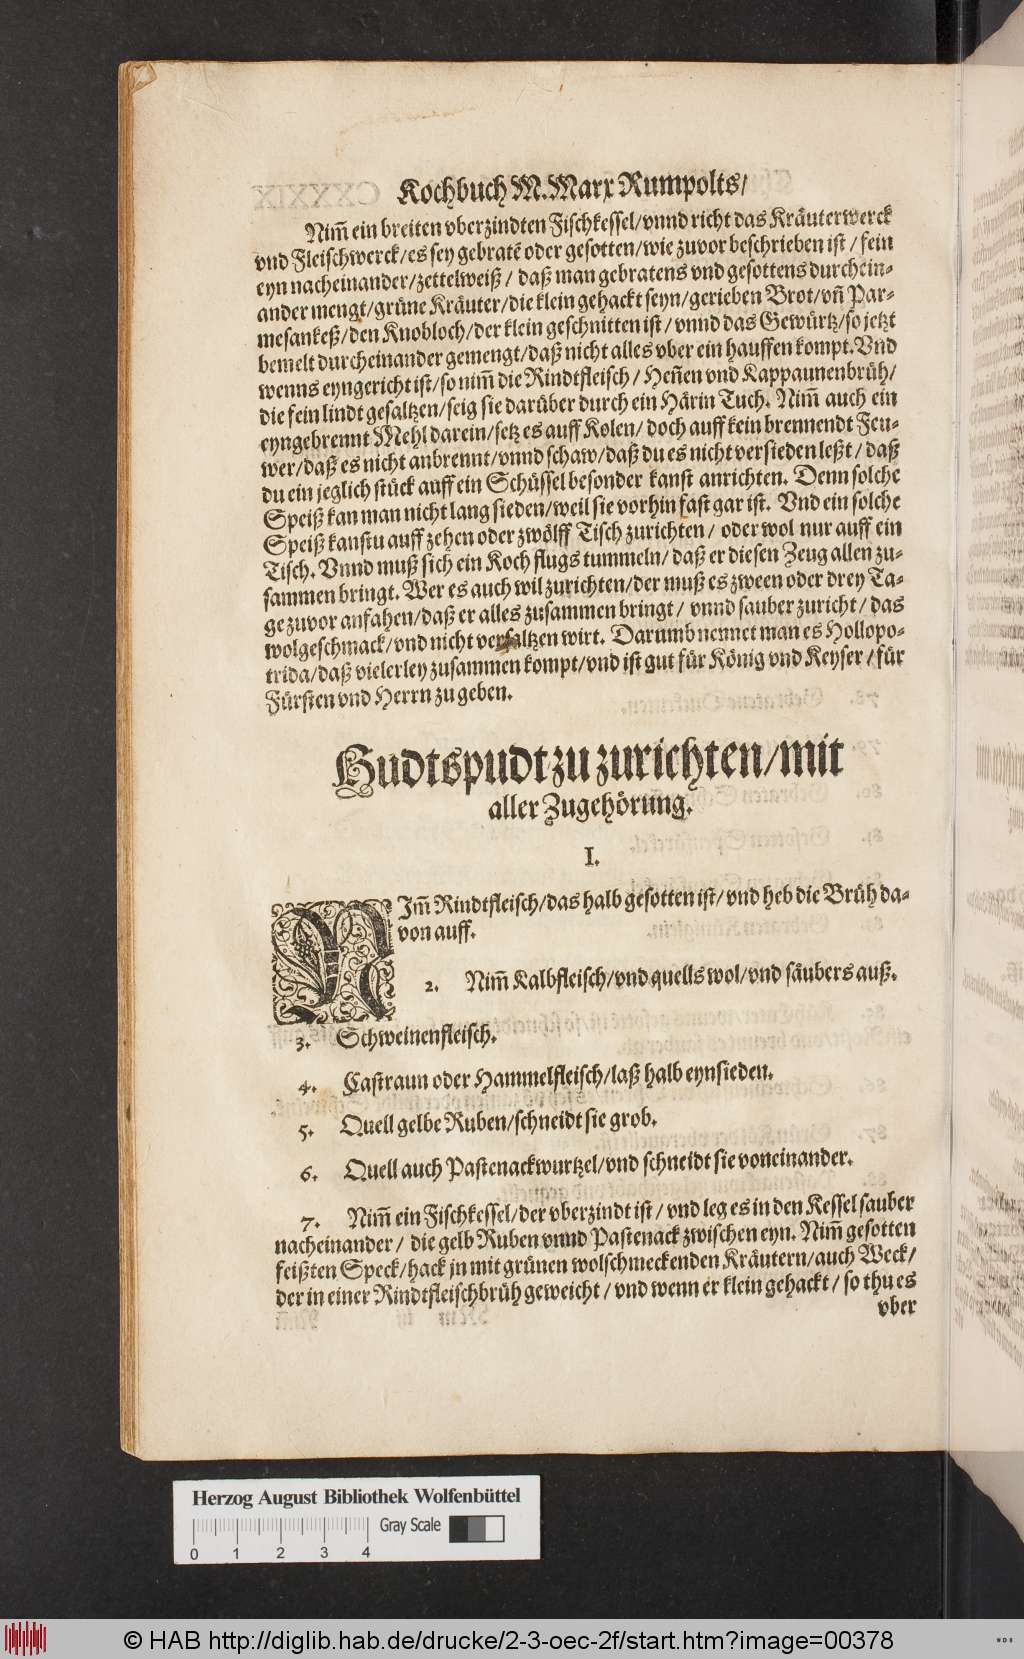 Kochbuch M. Marx Rumpolts/
Nim̃ ein breiten vberzindten Fischkessel/ vnnd richt das Kräuterwerck
vnd Fleischwerck/ es sey gebratẽ oder gesotten/ wie zuvor beschrieben ist / fein
eyn nacheinander/ zettelweiß / daß man gebratens vnd gesottens durchein-
ander mengt/ grüne Kräuter/ die klein gehackt seyn/ gerieben Brot/ vñ Par-
mesankeß/ den Knobloch/ der klein geschnitten ist / vnnd das Gewürtz/ so jetzt
bemelt durcheinander gemengt/ daß nicht alles vber ein hauffen kompt. Vnd
wenns eyngericht ist/ so nim̃ die Rindtfleisch / Heñen vnd Kappaunenbrüh/
die fein lindt gesaltzen/ seig sie darüber durch ein Härin Tuch. Nim̃ auch ein
eyngebrennt Mehl darein/ setz es auff Kolen/ doch auff kein brennendt Feu-
wer/ daß es nicht anbrennt/ vnnd schaw/ daß du es nicht versieden leßt / daß
du ein jeglich stück auff ein Schüssel besonder kanst anrichten. Denn solche
Speiß kan man nicht lang sieden/ weil sie vorhin fast gar ist. Vnd ein solche
Speiß kanstu auff zehen oder zwölff Tisch zurichten / oder wol nur auff ein
Tisch. Vnnd muß sich ein Koch flugs tummeln/ daß er diesen Zeug allen zu-
sammen bringt. Wer es auch wil zurichten/ der muß es zween oder drey Ta-
ge zuvor anfahen/ daß er alles zusammen bringt / vnnd sauber zuricht / das
wolgeschmack/ vnd nicht versaltzen wirt. Darumb nennet man es Hollopo-
trida/ daß vielerley zusammen kompt/ vnd ist gut für König vnd Keyser / für
Fürsten vnd Herrn zu geben.
Hudtspudt zu zurichten/ mit
aller Zugehörung.
I.
NIm̃ Rindtfleisch/ das halb gesotten ist/ vnd heb die Brüh da-
von auff.
2. Nim̃ Kalbfleisch/ vnd quells wol/ vnd säubers auß.
3. Schweinenfleisch.
4. Castraun oder Hammelfleisch/ laß halb eynsieden.
5. Quell gelbe Ruben/ schneidt sie grob.
6. Quell auch Pastenackwurtzel/ vnd schneidt sie voneinander.
7. Nim̃ ein Fischkessel/ der vberzindt ist / vnd leg es in den Kessel sauber
nacheinander / die gelb Ruben vnnd Pastenack zwischen eyn. Nim̃ gesotten
feißten Speck/ hack jn mit grünen wolschmeckenden Kräutern/ auch Weck/
der in einer Rindtfleischbrüh geweicht / vnd wenn er klein gehackt / so thu es
vber
Herzog August Bibliothek Wolfenbüttel
Gray Scale
0 1 2 3 4
© HAB http://diglib.hab.de/drucke/2-3-oec-2f/start.htm?image=00378